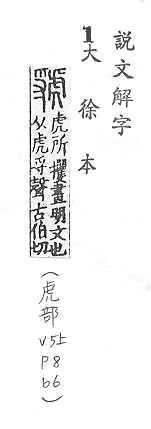 説文解字
1大徐本
虢
虎所攫畫明文也
从虎寽聲古伯切
(虎部
V5上
P8
b6)